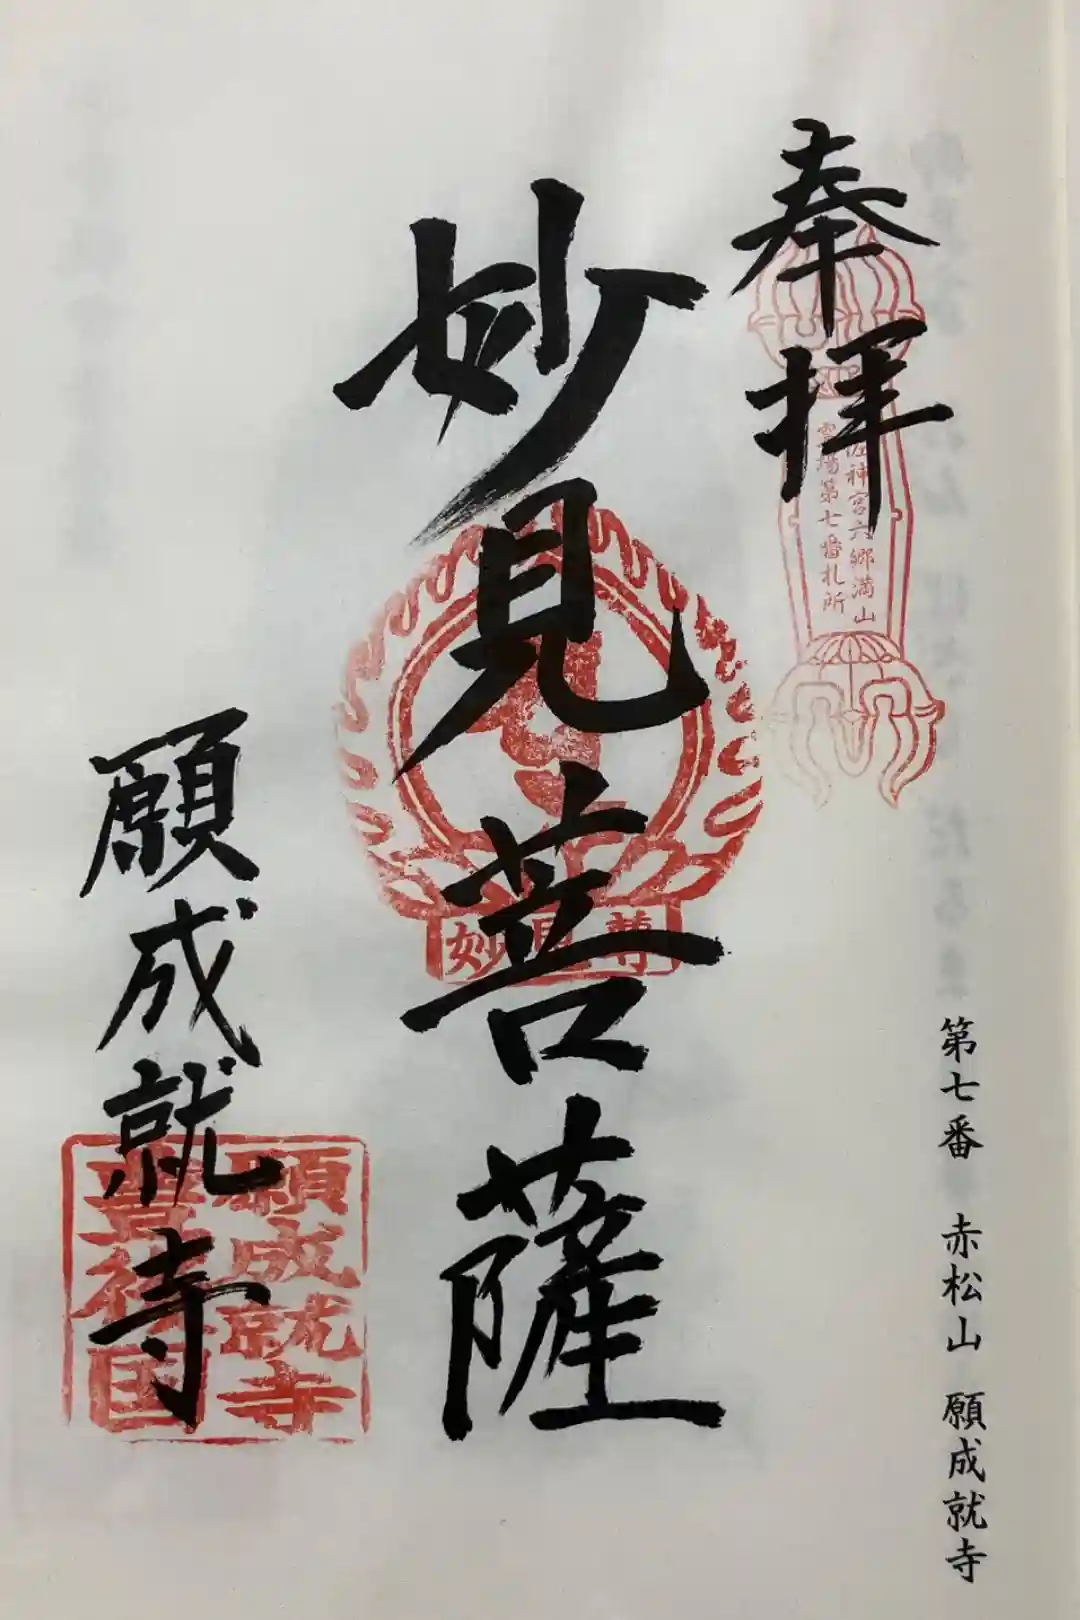 奉拝
佐神宮六郷満山
霊場第七番札所
妙見菩薩
妙見尊
願成就寺
願成就寺
豊後国
第七番 赤松山 願成就寺